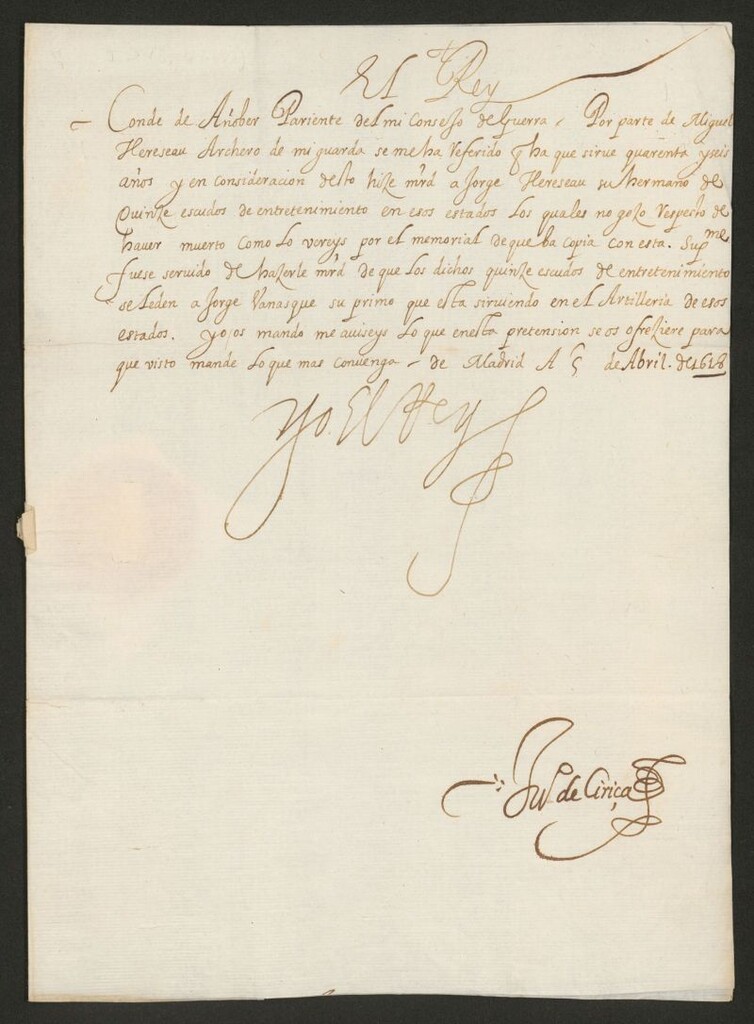 El Rey
Conde de Añober Pariente del mi consejo de Guerra, Por parte de Miguel
Hereseau Archero de mi guarda se me ha referido q̃ ha que sirve quarenta y seis
años y en consideracion desto hize mrd a Jorge Hereseau su hermano de
Quinze escudos de entretenimiento en esos estados los quales no gozo respecto de
haver muerto como lo vereys por el memorial de que ba copia con esta. Supme
fuese servido de hazerle mrd de que los dichos quinze escudos de entretenimiento
se leden a Jorge Vanasque su primo que esta sirviendo en el Artilleria de esos
estados. y o os mando me aviseys lo que en esta pretension se os ofreziere para
que visto mande lo que mas convenga - de Madrid A 5 de Abril. de 1618
Yo El Rey
Ju.º de Ciriça